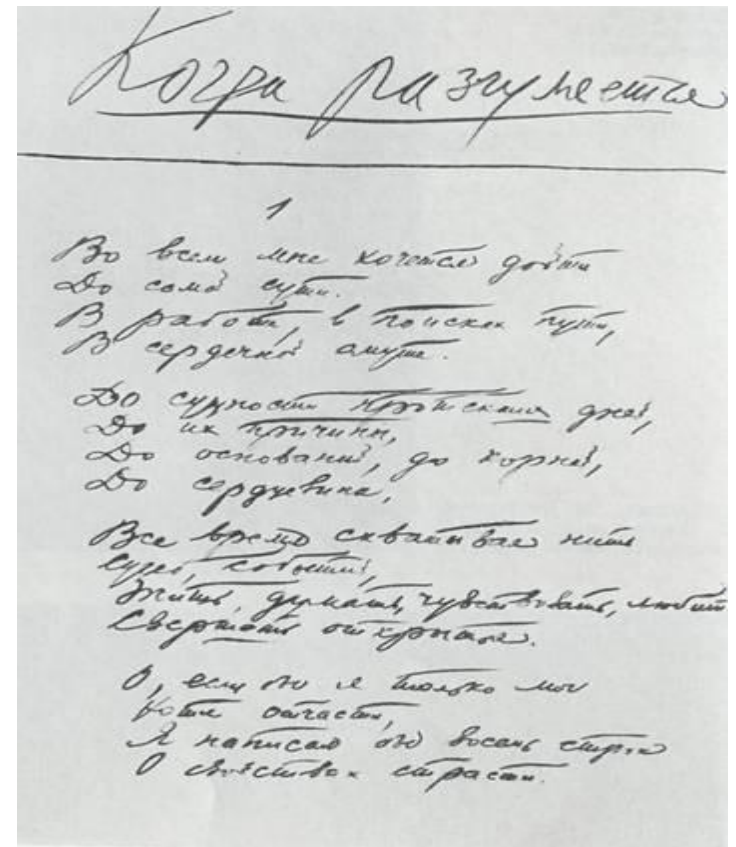 Когда разгуляется
1
Во всем мне хочется дойти
До самой сути.
В работе, в поисках пути,
В сердечной смуте.
До сущности протекших дней,
До их причины,
До оснований, до корней,
До сердцевины,
Все время схватывая нить
Судеб, событий,
Жить, думать, чувствовать, любить
Свершать открытья.
О, если бы я только мог
Хотя отчасти,
Я написал бы восемь строк
О свойствах страсти.